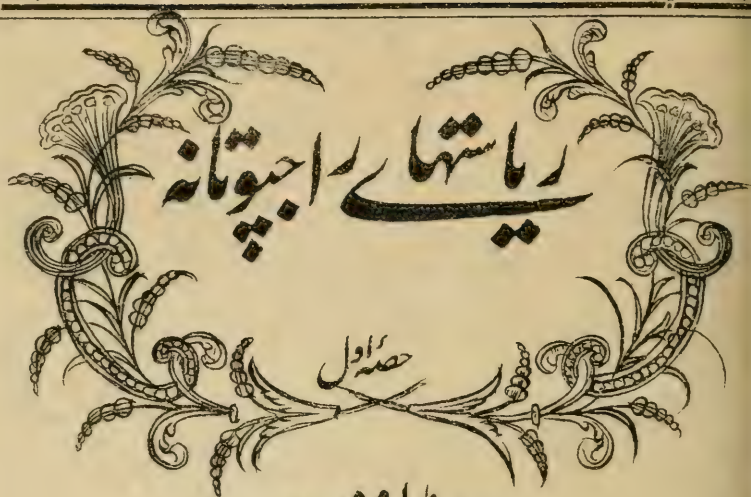 ریاستہاے راجپوتانہ
حصہٴ اول